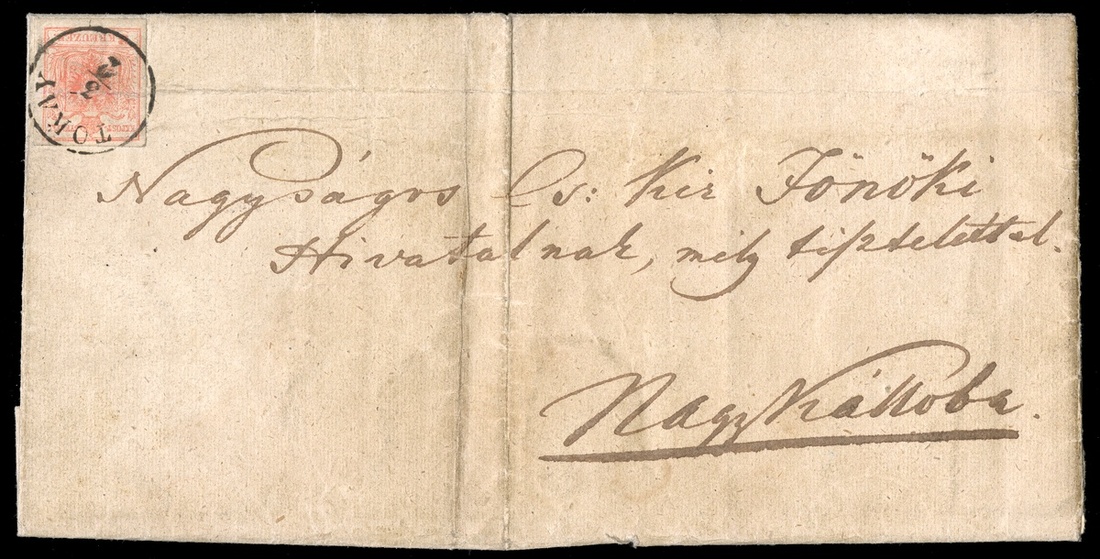 KREUZER
TOKAY
Nagyságos Cs: Kir Főnöki
Hivatalnak, mély tisztelettel.
NagyKállóba.